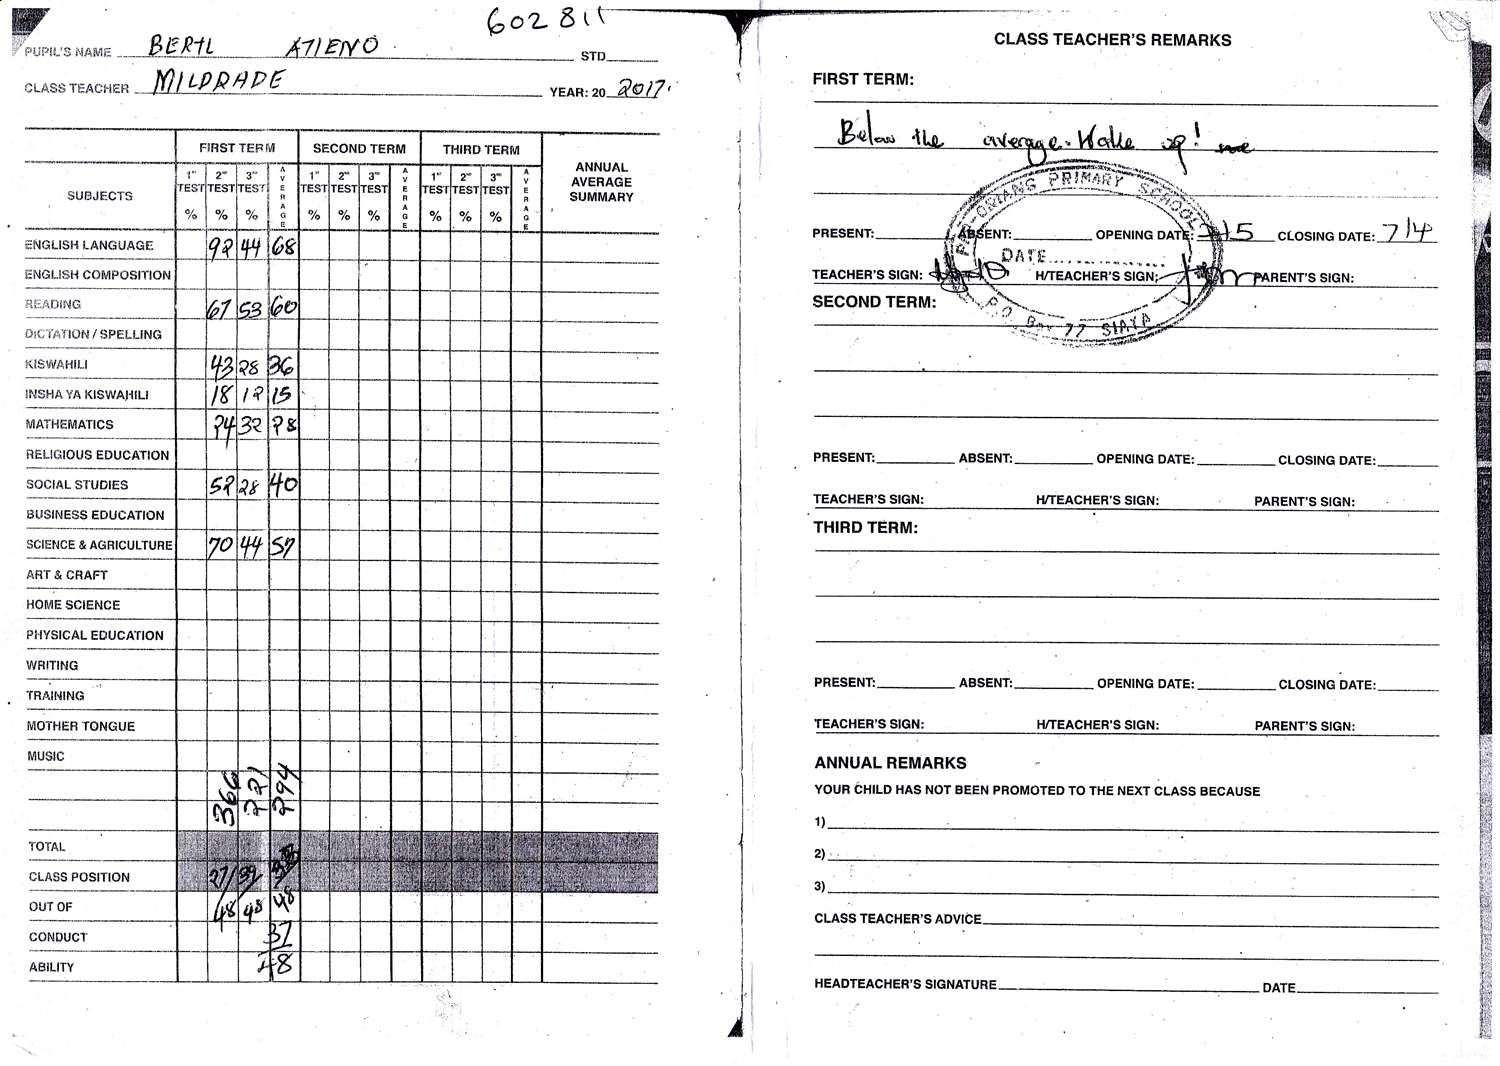 602811
PUPIL'S NAME BERIL ATIENO STD
CLASS TEACHER MILDRADE YEAR: 20 2017
FIRST TERM SECOND TERM THIRD TERM ANNUAL AVERAGE SUMMARY
SUBJECTS 1st TEST % 2nd TEST % 3rd TEST % AVERAGE 1st TEST % 2nd TEST % 3rd TEST % AVERAGE 1st TEST % 2nd TEST % 3rd TEST % AVERAGE
ENGLISH LANGUAGE 92 44 68
ENGLISH COMPOSITION
READING 67 53 60
DICTATION / SPELLING
KISWAHILI 43 28 36
INSHA YA KISWAHILI 18 12 15
MATHEMATICS 24 32 28
RELIGIOUS EDUCATION
SOCIAL STUDIES 52 28 40
BUSINESS EDUCATION
SCIENCE & AGRICULTURE 70 44 57
ART & CRAFT
HOME SCIENCE
PHYSICAL EDUCATION
WRITING
TRAINING
MOTHER TONGUE
MUSIC
366 221 294
TOTAL
CLASS POSITION 27 39
OUT OF 48 48 48
CONDUCT 37
ABILITY 48
CLASS TEACHER'S REMARKS
FIRST TERM:
Below the average. Wake up!
ORIANG PRIMARY SCHOOL
PRESENT: ABSENT: OPENING DATE: 15 CLOSING DATE: 7/4
DATE
TEACHER'S SIGN: H/TEACHER'S SIGN: PARENT'S SIGN:
P.O Box 77 SIAYA
SECOND TERM:
PRESENT: ABSENT: OPENING DATE: CLOSING DATE:
TEACHER'S SIGN: H/TEACHER'S SIGN: PARENT'S SIGN:
THIRD TERM:
PRESENT: ABSENT: OPENING DATE: CLOSING DATE:
TEACHER'S SIGN: H/TEACHER'S SIGN: PARENT'S SIGN:
ANNUAL REMARKS
YOUR CHILD HAS NOT BEEN PROMOTED TO THE NEXT CLASS BECAUSE
1)
2)
3)
CLASS TEACHER'S ADVICE
HEADTEACHER'S SIGNATURE DATE